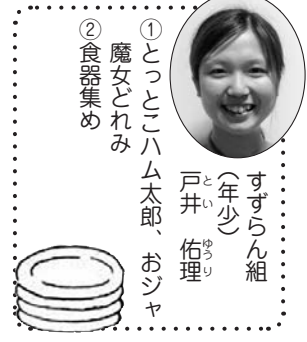 すずらん組
(年少)
戸井 佑理
とい ゆうり
①とっとこハム太郎、おジャ
魔女どれみ
②食器集め